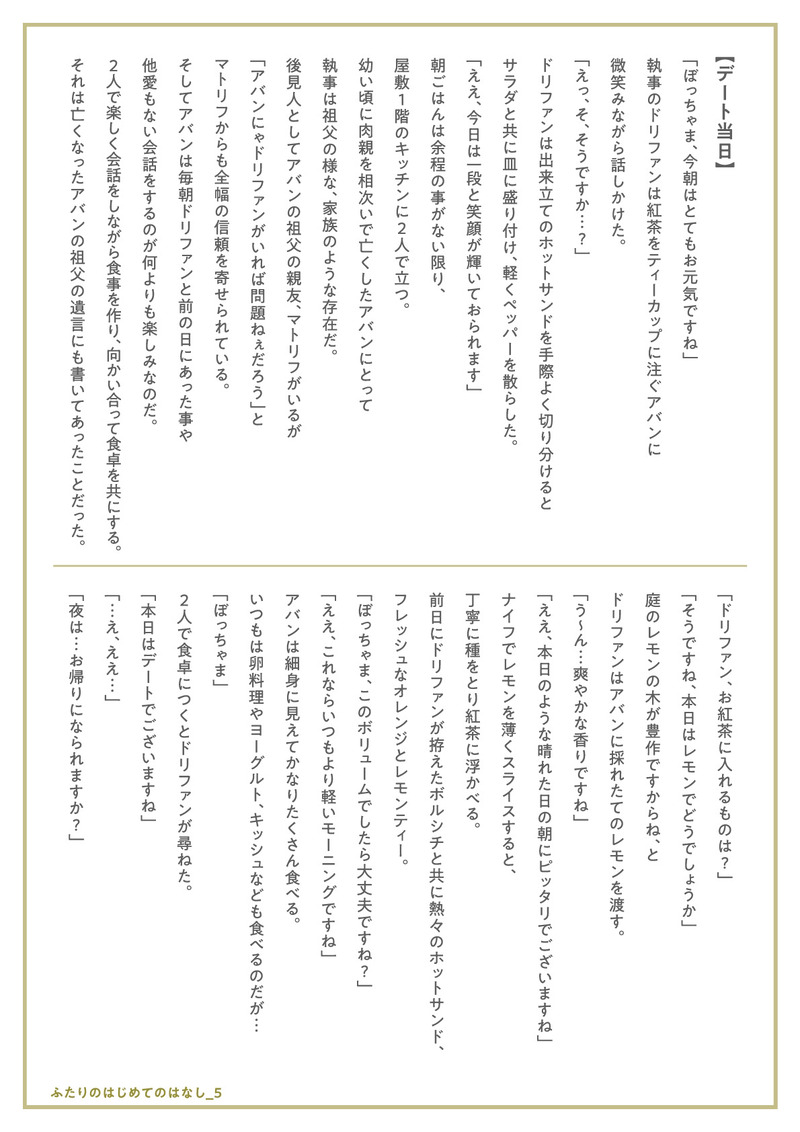 【デート当日】
「ぼっちゃま、今朝はとてもお元気ですね」
執事のドリファンは紅茶をティーカップに注ぐアバンに
微笑みながら話しかけた。
「えっ、そ、そうですか…？」
ドリファンは出来立てのホットサンドを手際よく切り分けると
サラダと共に皿に盛り付け、軽くペッパーを散らした。
「ええ、今日は一段と笑顔が輝いておられます」
朝ごはんは余程の事がない限り、
屋敷１階のキッチンに２人で立つ。
幼い頃に肉親を相次いで亡くしたアバンにとって
執事は祖父の様な、家族のような存在だ。
後見人としてアバンの祖父の親友、マトリフがいるが
「アバンにゃドリファンがいれば問題ねぇだろう」と
マトリフからも全幅の信頼を寄せられている。
そしてアバンは毎朝ドリファンと前の日にあった事や
他愛もない会話をするのが何よりも楽しみなのだ。
２人で楽しく会話をしながら食事を作り、向かい合って食卓を共にする。
それは亡くなったアバンの祖父の遺言にも書いてあったことだった。
「ドリファン、お紅茶に入れるものは？」
「そうですね、本日はレモンでどうでしょうか」
庭のレモンの木が豊作ですからね、と
ドリファンはアバンに採れたてのレモンを渡す。
「う〜ん…爽やかな香りですね」
「ええ、本日のような晴れた日の朝にピッタリでございますね」
ナイフでレモンを薄くスライスすると、
丁寧に種をとり紅茶に浮かべる。
前日にドリファンが拵えたボルシチと共に熱々のホットサンド、
フレッシュなオレンジとレモンティー。
「ぼっちゃま、このボリュームでしたら大丈夫ですね？」
「ええ、これならいつもより軽いモーニングですね」
アバンは細身に見えてかなりたくさん食べる。
いつもは卵料理やヨーグルト、キッシュなども食べるのだが…
「ぼっちゃま」
２人で食卓につくとドリファンが尋ねた。
「本日はデートでございますね」
「…え、ええ…」
「夜は…お帰りになられますか？」
ふたりのはじめてのはなし_5